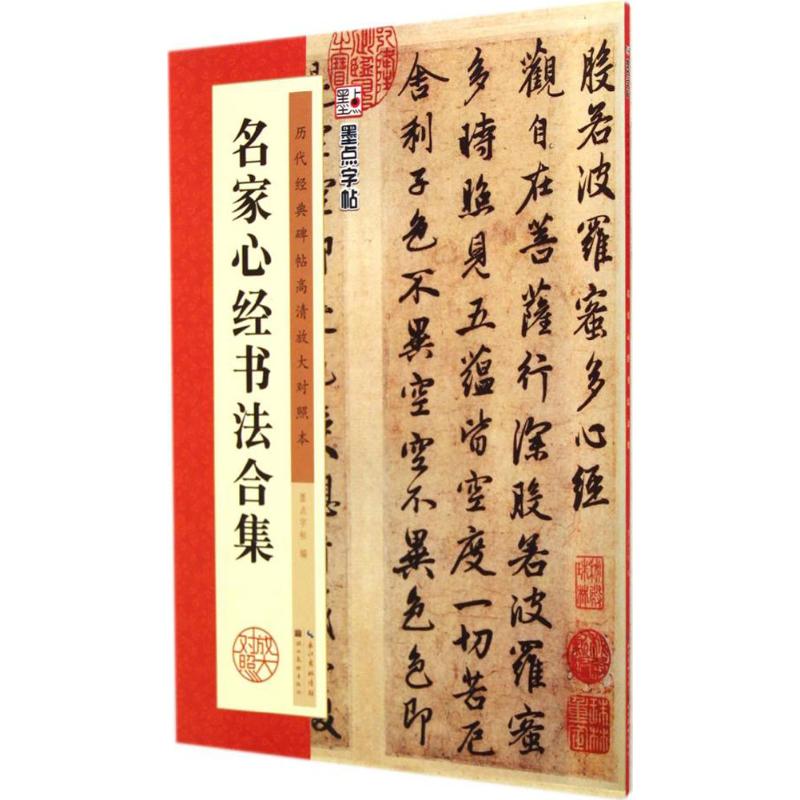 名家心经书法合集
历代经典碑帖高清放大对照本
墨点字帖 编
放大对照
墨点
墨点字帖
般若波羅蜜多心經
觀自在菩薩行深般若波羅蜜
多時照見五蘊皆空度一切苦厄
舍利子色不異空空不異色色即